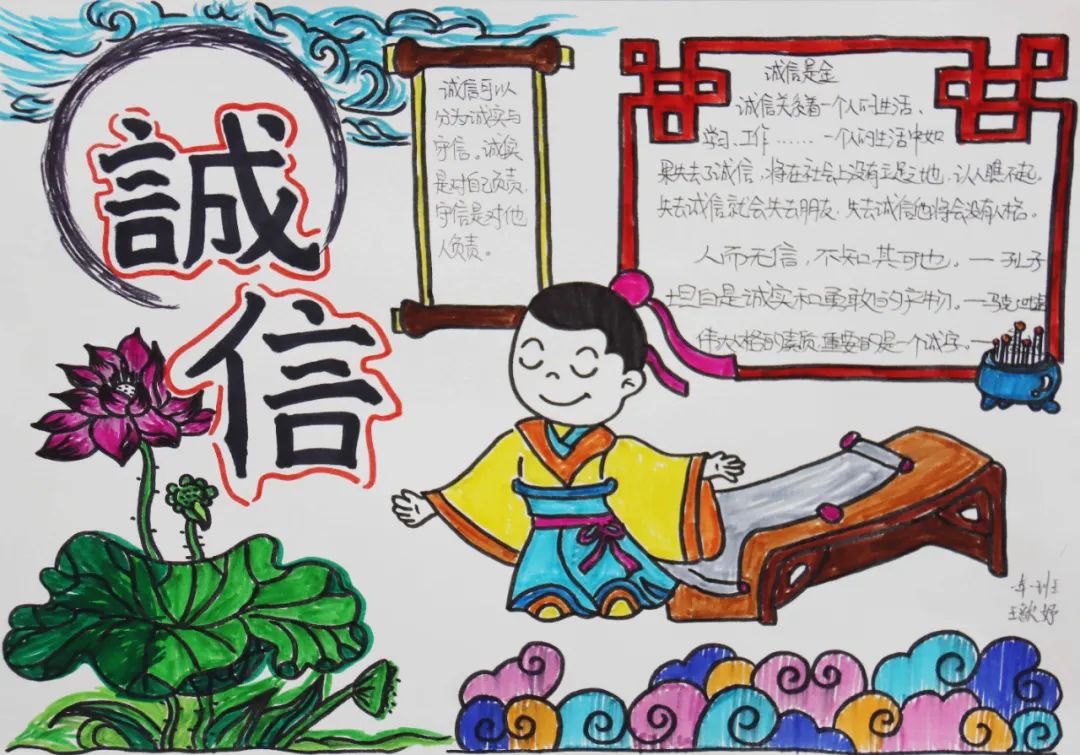 誠
信
诚信可以
分为诚实与
守信。诚实
是对自己负责,
守信是对他
人负责。
诚信是金
诚信关系着一个人的生活、
学习、工作……一个人的生活中如
果失去了诚信,将在社会上没有立足之地,让人瞧不起。
失去诚信就会失去朋友,失去诚信他将会没有人格。
人而无信,不知其可也。—孔子
坦白是诚实和勇敢的产物。—马克·吐温
伟大人格的素质,重要的是一个诚字。—
一年一班